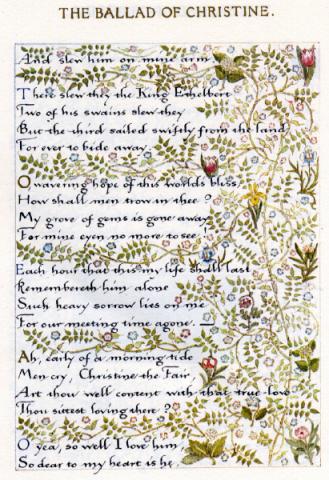 THE BALLAD OF CHRISTINE.
And slew him on mine arm
There slew they the King Ethelbert
Two of his swains slew they
But the third sailed swiftly from the land
For ever to bide away.
O wavering hope of this world's bliss,
How shall men trow in thee?
My grove of gems is gone away
For mine eyen no more to see!
Each hour that this my life shall last
Remembereth him alone
Such heavy sorrow lies on me
For our meeting time agone.
Ah, early of a morning tide
Men cry, Christine the Fair,
Art thou well content with that true love
Thou sittest loving there?
O yea, so well I love him,
So dear to my heart is he,